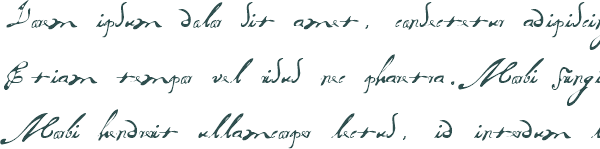 Lorem ipsum dolor sit amet, consectetur adipiscing
Etiam tempor vel risus nec pharetra. Morbi fringi
Morbi hendrerit ullamcorper lectus, id interdum